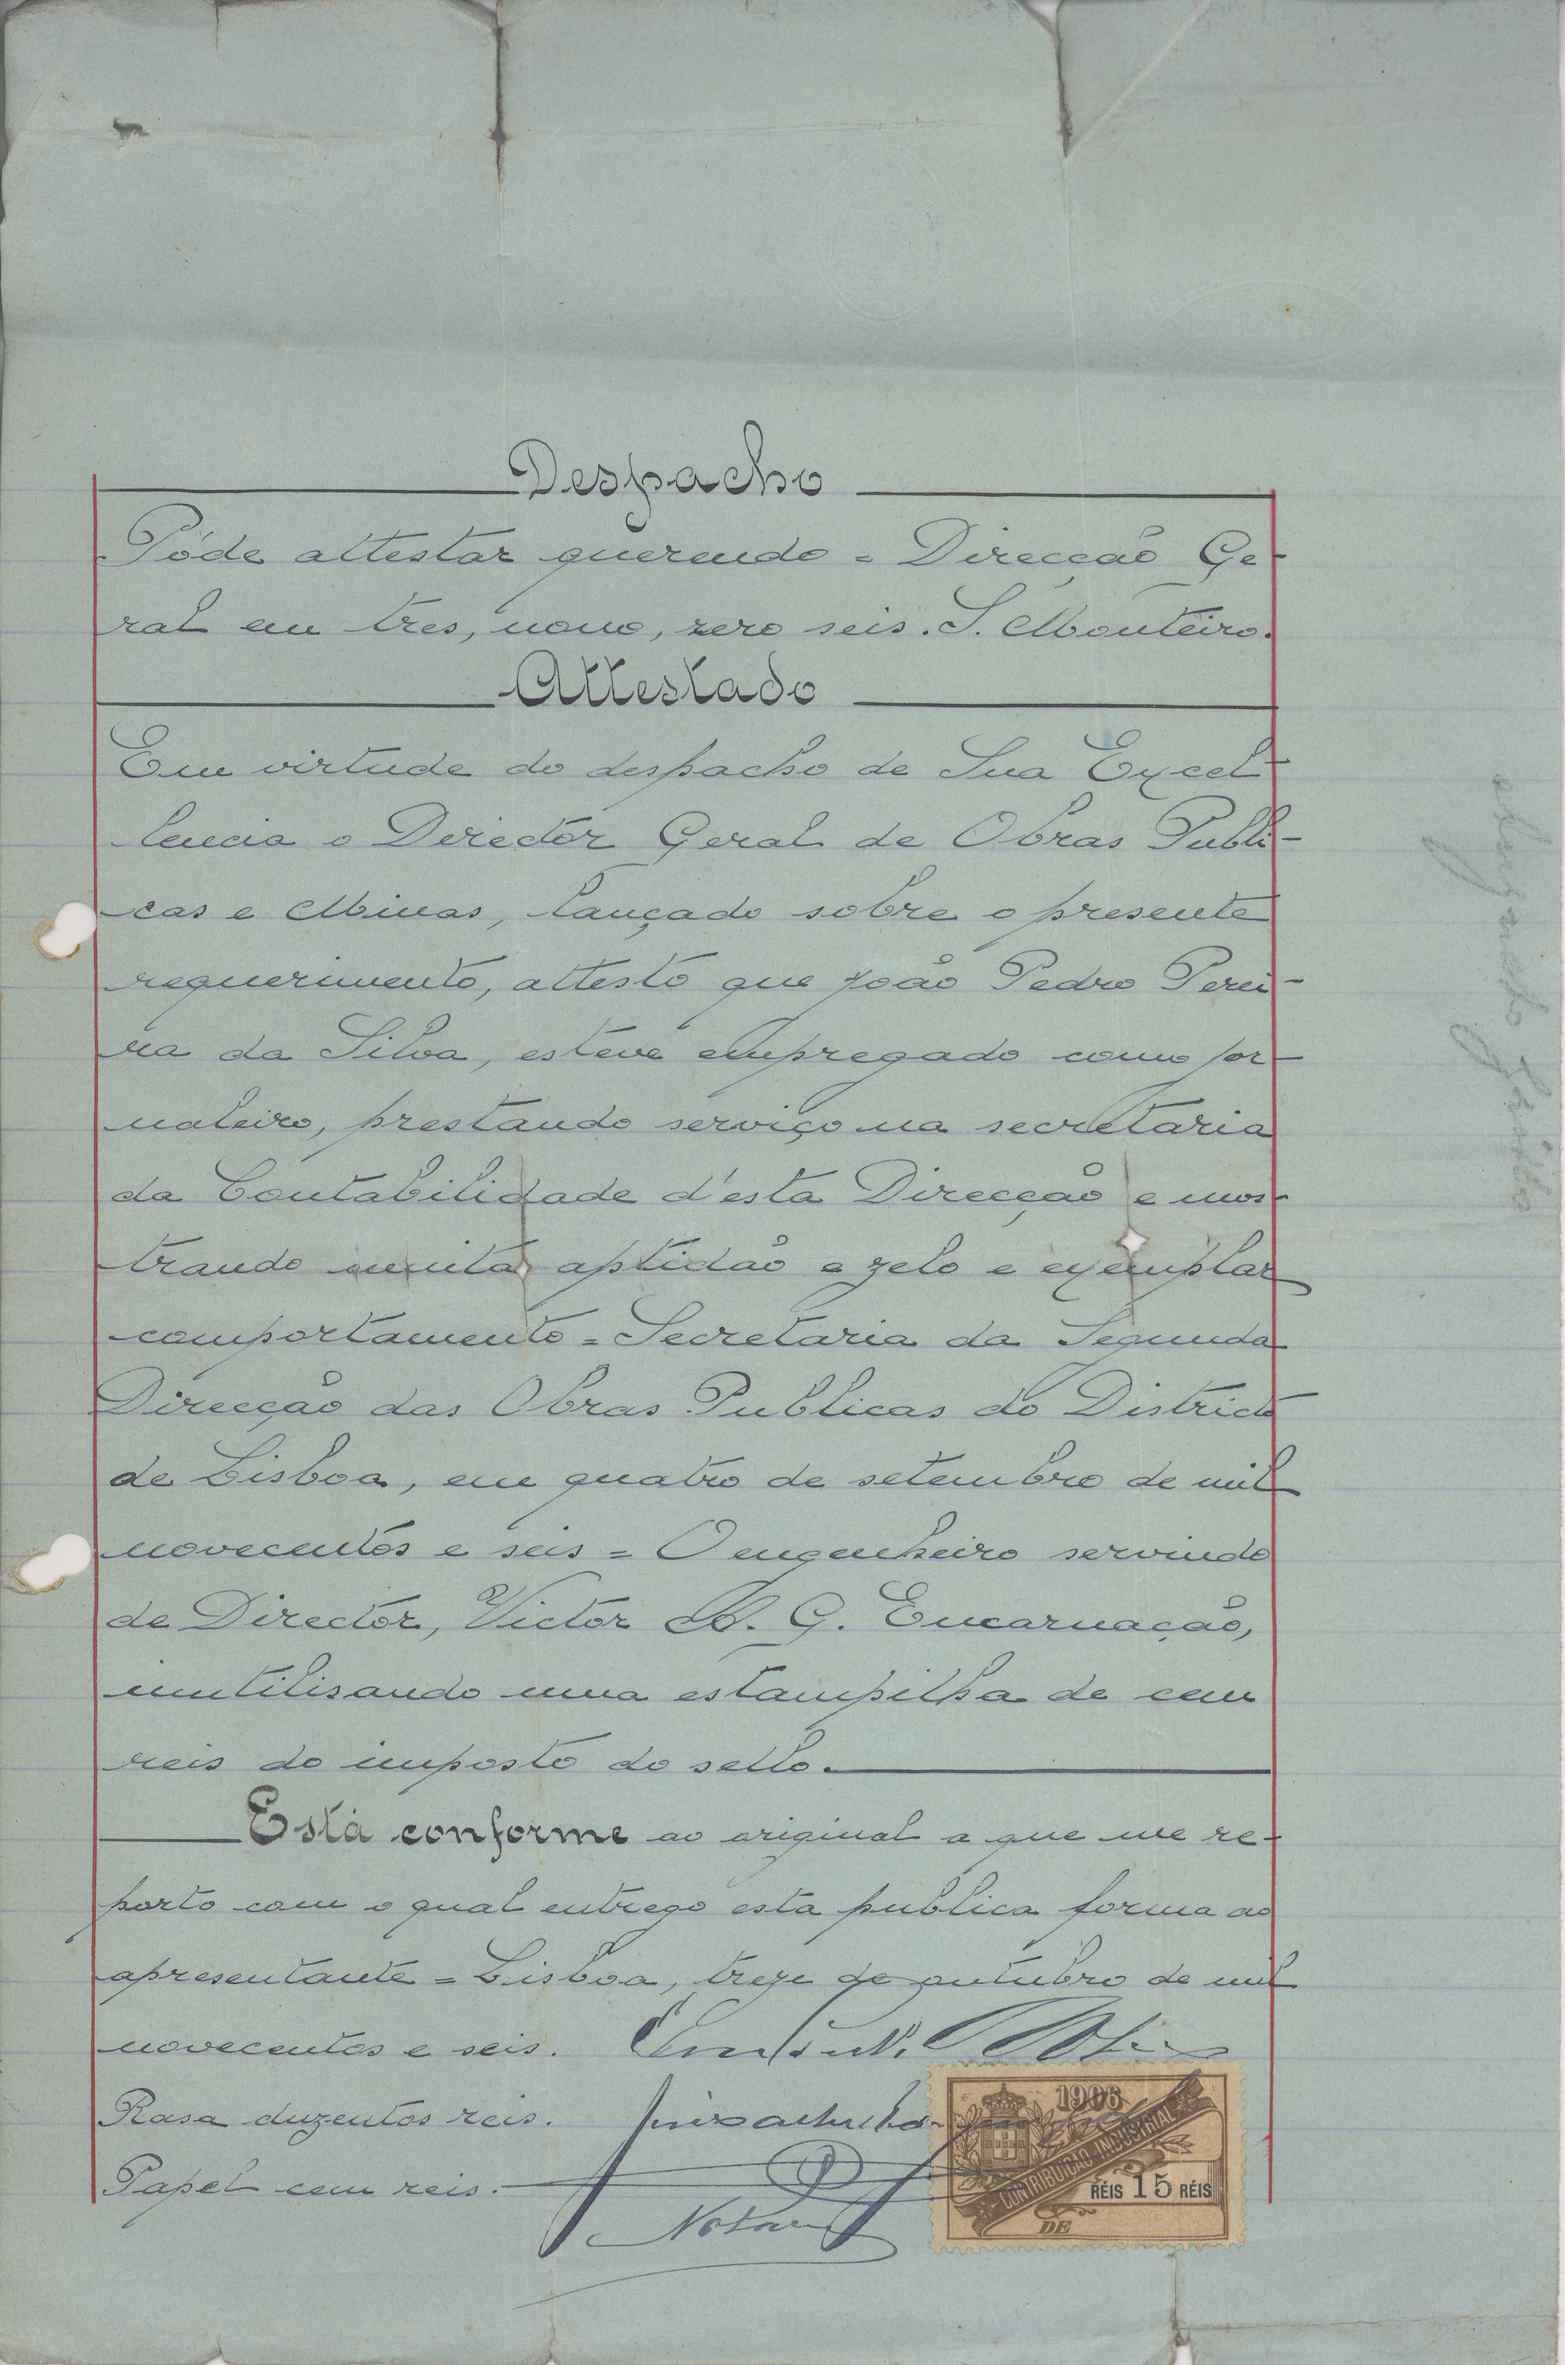 Despacho
Póde attestar querendo = Direcção Ge-
ral em tres, nove, zero seis. S. Monteiro.
Attestado
Em virtude do despacho de Sua Excel-
lencia o Director Geral de Obras Publi-
cas e Minas, lançado sobre o presente
requerimento, attesto que João Pedro Perei-
ra da Silva, esteve empregado como jor-
naleiro, prestando serviço na secretaria
da Contabilidade d'esta Direcção e mos-
trando muita aptidão e zelo e exemplar
comportamento = Secretaria da Segunda
Direcção das Obras Publicas do Districto
de Lisboa, em quatro de setembro de mil
novecentos e seis = O engenheiro servindo
de Director, Victor G. Encarnação,
inutilisando uma estampilha de cem
reis do imposto do sello.
Está conforme ao original a que me re-
porto com o qual entrego esta publica forma ao
apresentante = Lisboa, treze de outubro de mil
novecentos e seis.
Rasa duzentos reis.
Papel cem reis.
Notario
1906
CONTRIBUIÇÃO INDUSTRIAL
RÉIS 15 RÉIS
DE